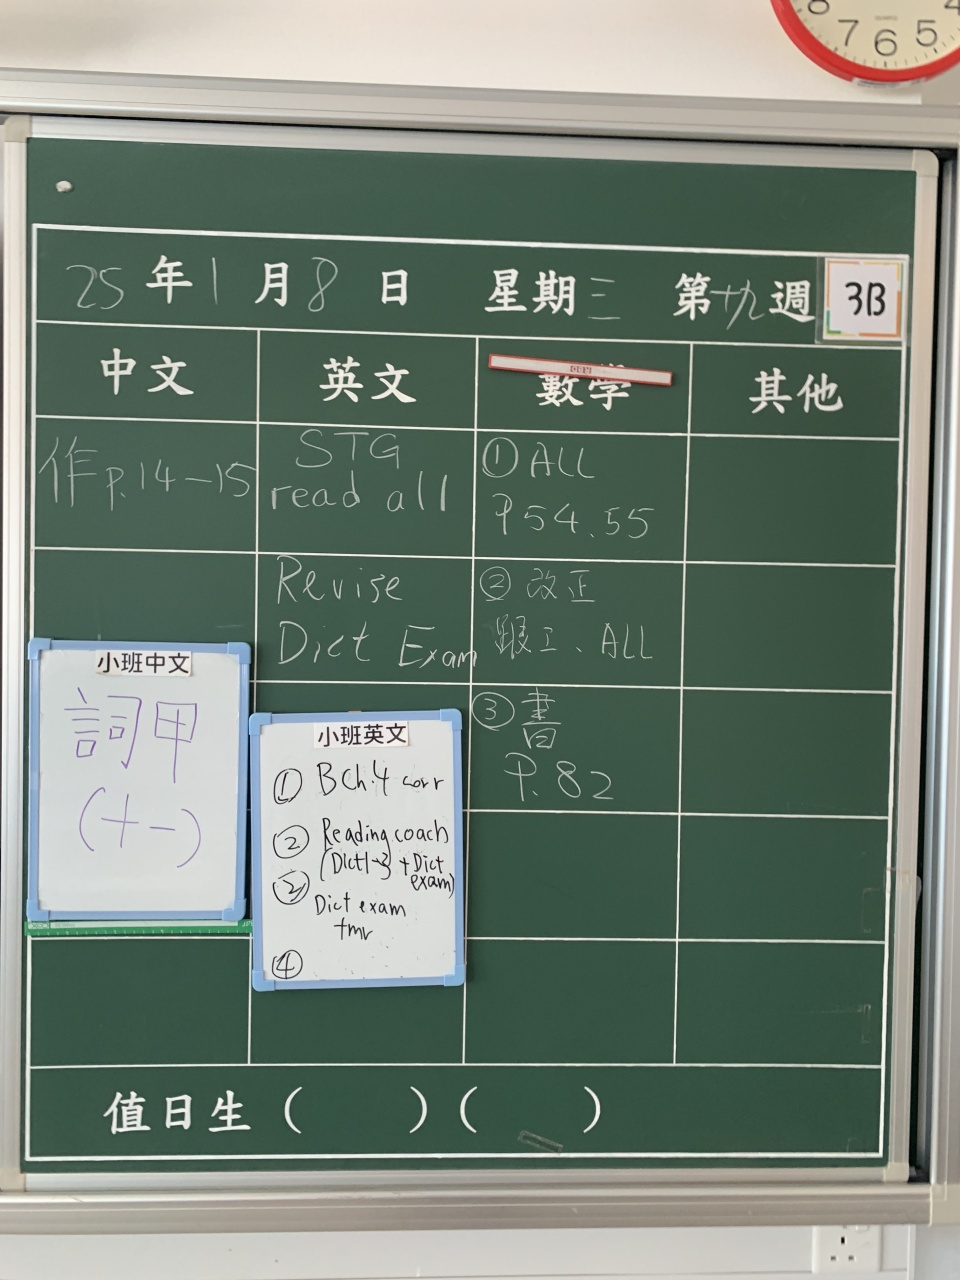 8 7 6 5 4
25年1月8日 星期三 第十九週 3B
中文 英文 數學 其他
作 p.14-15
STG
read all
Revise
Dict Exam
① ALL
P54.55
② 改正
跟工、ALL
③ 書
P.82
小班中文
詞甲
(十一)
小班英文
① BCh.4 corr
② Reading coach
(Dict1-3 + Dict
exam)
③ Dict exam
tmr
④
值日生 ( ) ( )